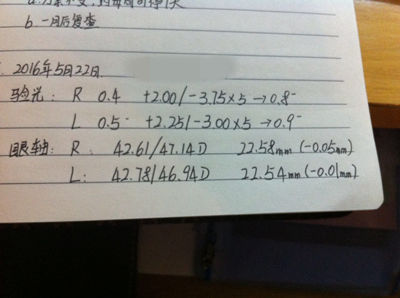 b. 一月后复查
2016年5月22日
验光: R 0.4 +2.00/-3.75×5→0.8⁻
L 0.5⁻ +2.25/-3.00×5→0.9⁻
眼轴: R: 42.61/47.14D 22.58mm (-0.05mm)
L: 42.78/46.94D 22.54mm (-0.01mm)